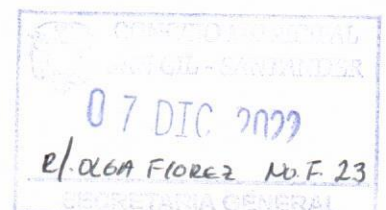 CONCEJO MUNICIPAL
SAN GIL - SANTANDER
07 DIC 2022
R/. OLGA FLOREZ No. F. 23
SECRETARIA GENERAL